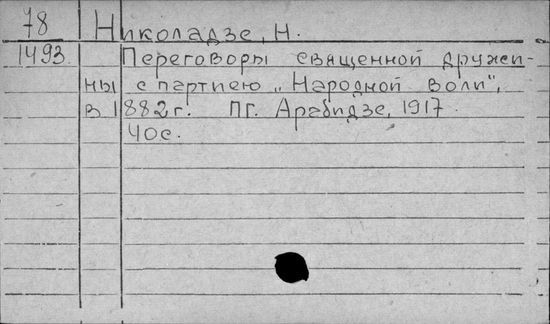 78 Николадзе, Н.
1493 Переговоры священной дружи-
ны с партиею „Народной воли",
в 1882 г. ПГ. Арабидзе, 1917
40с.